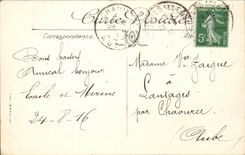 Carte Postale
Correspondance
Bons baisers
Amical bonjour
Emile et
24-8-16
Madame Vve
à
Lantages
par Chaource
Aube
5c